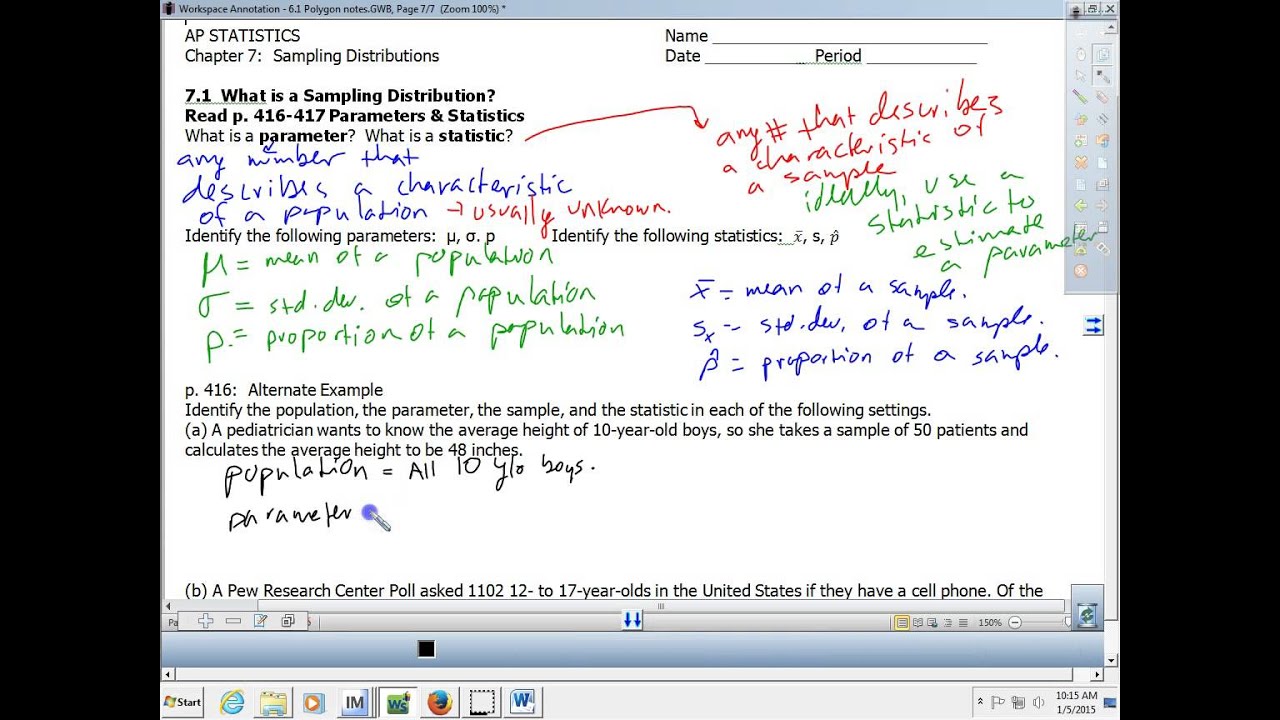 Workspace Annotation - 6.1 Polygon notes.GWB, Page 7/7 (Zoom 100%) *
AP STATISTICS
Name
Chapter 7: Sampling Distributions
Date Period
7.1 What is a Sampling Distribution?
Read p. 416-417 Parameters & Statistics
What is a parameter? What is a statistic?
any # that describes
a characteristic of
a sample
any number that
describes a characteristic
of a population → usually unknown.
ideally, use a
statistic to
estimate
a parameter
Identify the following parameters: μ, σ. p
Identify the following statistics: x̄, s, p̂
μ = mean of a population
σ = std. dev. of a population
p. = proportion of a population
x̄ = mean of a sample.
sₓ = std. dev. of a sample.
p̂ = proportion of a sample.
p. 416: Alternate Example
Identify the population, the parameter, the sample, and the statistic in each of the following settings.
(a) A pediatrician wants to know the average height of 10-year-old boys, so she takes a sample of 50 patients and
calculates the average height to be 48 inches.
population = All 10 y/o boys.
parameter
(b) A Pew Research Center Poll asked 1102 12- to 17-year-olds in the United States if they have a cell phone. Of the
Pa
150%
Start
IM
WS
W
10:15 AM
1/5/2015